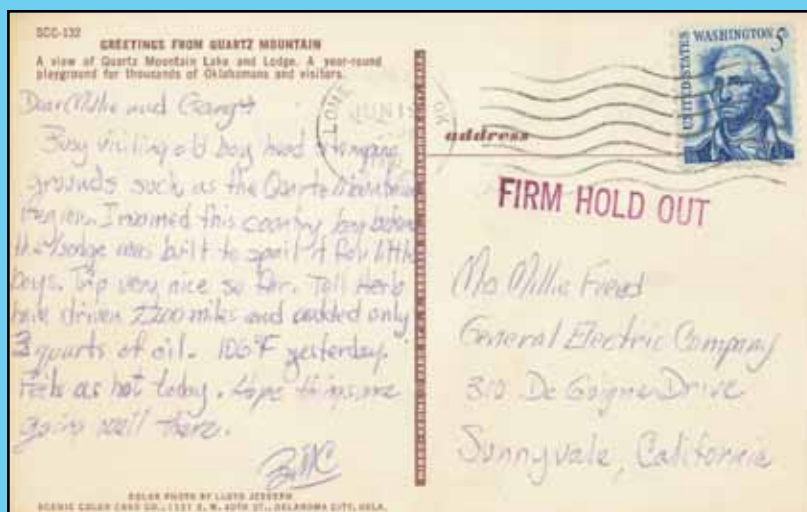 SCC-132
GREETINGS FROM QUARTZ MOUNTAIN
A view of Quartz Mountain Lake and Lodge. A year-round
playground for thousands of Oklahomans and visitors.
Dear Millie and
Busy visiting old boy hood stomping
grounds such as the Quartz Mountain
region. I roamed this country boy before
the lodge was built to spoil it for little
boys. Trip very nice so far. Tell Herb
have driven 2200 miles and added only
3 quarts of oil. 106°F yesterday.
Feels as hot today. Hope things are
going well there.
Bill C
COLOR PHOTO BY LLOYD
SCENIC COLOR CARD CO., S. W. 40TH ST., OKLAHOMA CITY, OKLA.
LONE
JUN
OK
address
UNITED STATES
WASHINGTON 5c
FIRM HOLD OUT
Ms Millie
General Electric Company
310 De Guigne Drive
Sunnyvale, California